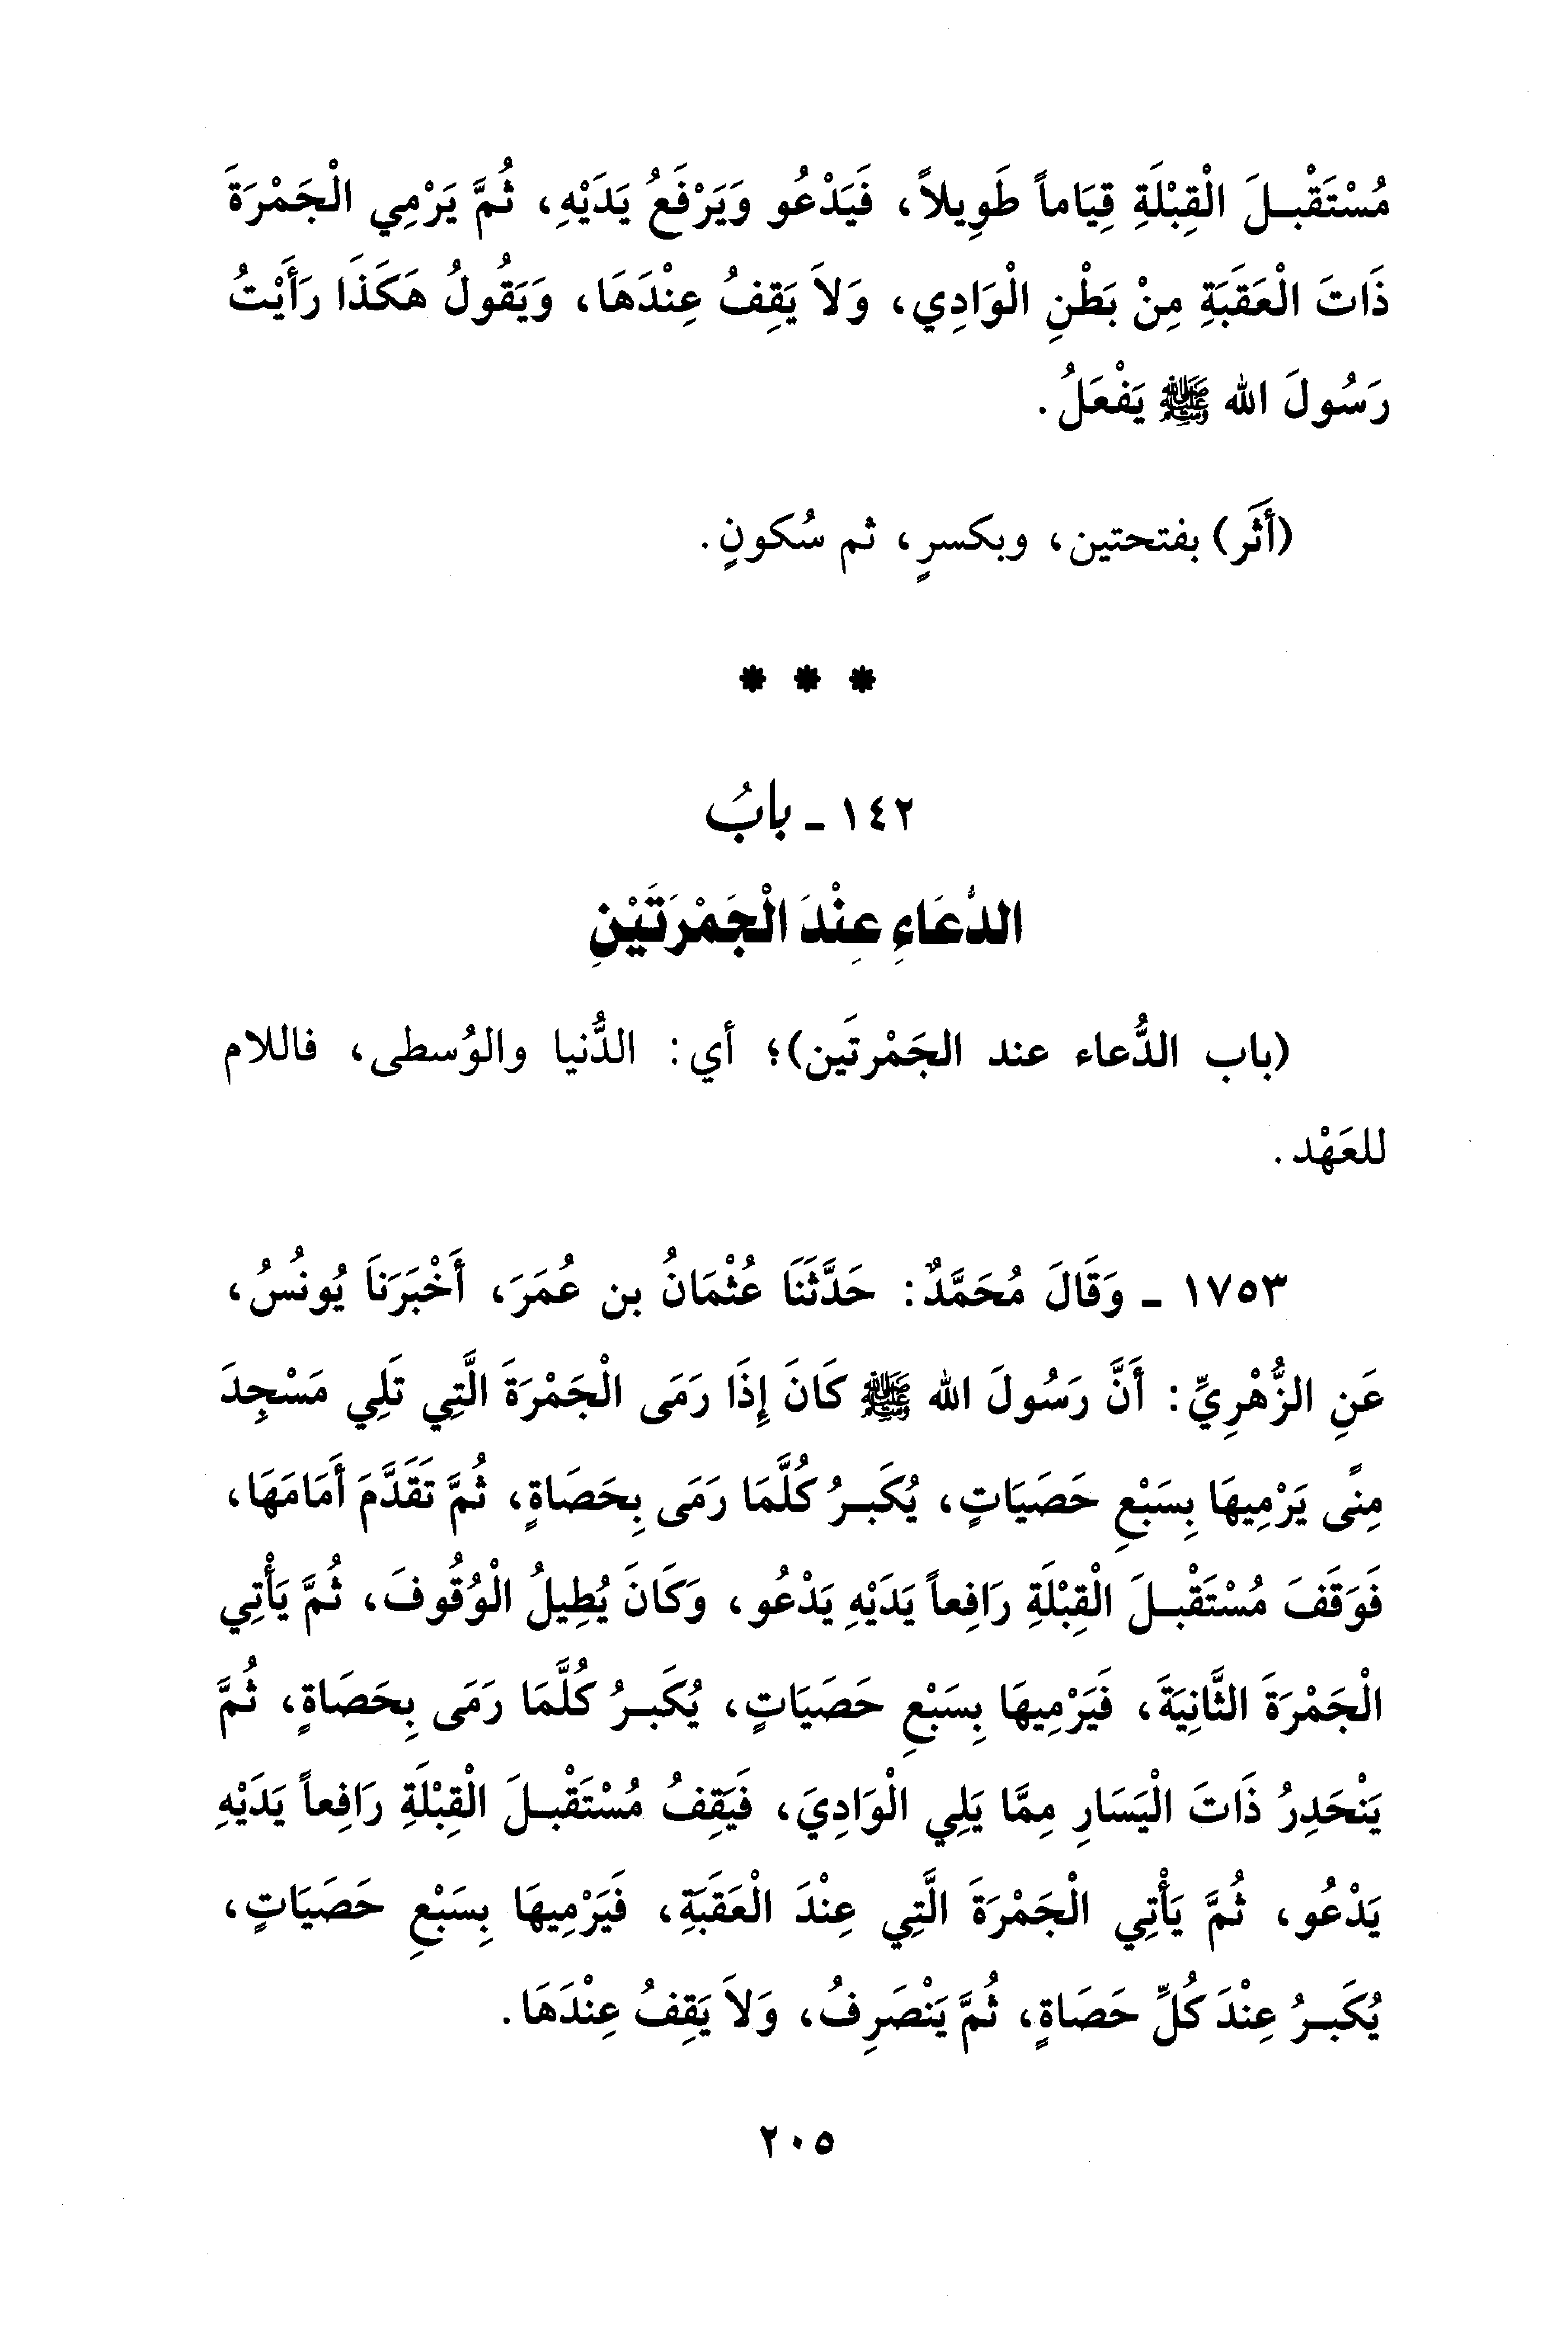 مُسْتَقْبِلَ الْقِبْلَةِ قِيَاماً طَوِيلاً، فَيَدْعُو وَيَرْفَعُ يَدَيْهِ، ثُمَّ يَرْمِي الْجَمْرَةَ
ذَاتَ الْعَقَبَةِ مِنْ بَطْنِ الْوَادِي، وَلاَ يَقِفُ عِنْدَهَا، وَيَقُولُ هَكَذَا رَأَيْتُ
رَسُولَ الله ﷺ يَفْعَلُ.
(أَثَر) بفتحتين، وبكسرٍ، ثم سُكونٍ.
* * *
١٤٢ - بابُ
الدُّعَاءِ عِنْدَ الْجَمْرَتَيْنِ
(باب الدُّعاء عند الجَمْرتَين)؛ أي: الدُّنيا والوُسطى، فاللام
للعَهْد.
١٧٥٣ - وَقَالَ مُحَمَّدٌ: حَدَّثَنَا عُثْمَانُ بن عُمَرَ، أَخْبَرَناَ يُونُسُ،
عَنِ الزُّهْرِيِّ: أَنَّ رَسُولَ الله ﷺ كَانَ إِذَا رَمَى الْجَمْرَةَ الَّتِي تَلِي مَسْجِدَ
مِنًى يَرْمِيهَا بِسَبْعِ حَصَيَاتٍ، يُكَبرُ كُلَّمَا رَمَى بِحَصَاةٍ، ثُمَّ تَقَدَّمَ أَمَامَهَا،
فَوَقَفَ مُسْتَقْبِلَ الْقِبْلَةِ رَافِعاً يَدَيْهِ يَدْعُو، وَكَانَ يُطِيلُ الْوُقُوفَ، ثُمَّ يَأْتِي
الْجَمْرَةَ الثَّانِيَةَ، فَيَرْمِيهَا بِسَبْعِ حَصَيَاتٍ، يُكَبرُ كُلَّمَا رَمَى بِحَصَاةٍ، ثُمَّ
يَنْحَدِرُ ذَاتَ الْيَسَارِ مِمَّا يَلِي الْوَادِيَ، فَيَقِفُ مُسْتَقْبِلَ الْقِبْلَةِ رَافِعاً يَدَيْهِ
يَدْعُو، ثُمَّ يَأْتِي الْجَمْرَةَ الَّتِي عِنْدَ الْعَقَبَةِ، فَيَرْمِيهَا بِسَبْعِ حَصَيَاتٍ،
يُكَبرُ عِنْدَ كُلِّ حَصَاةٍ، ثُمَّ يَنْصَرِفُ، وَلاَ يَقِفُ عِنْدَهَا.
٢٠٥